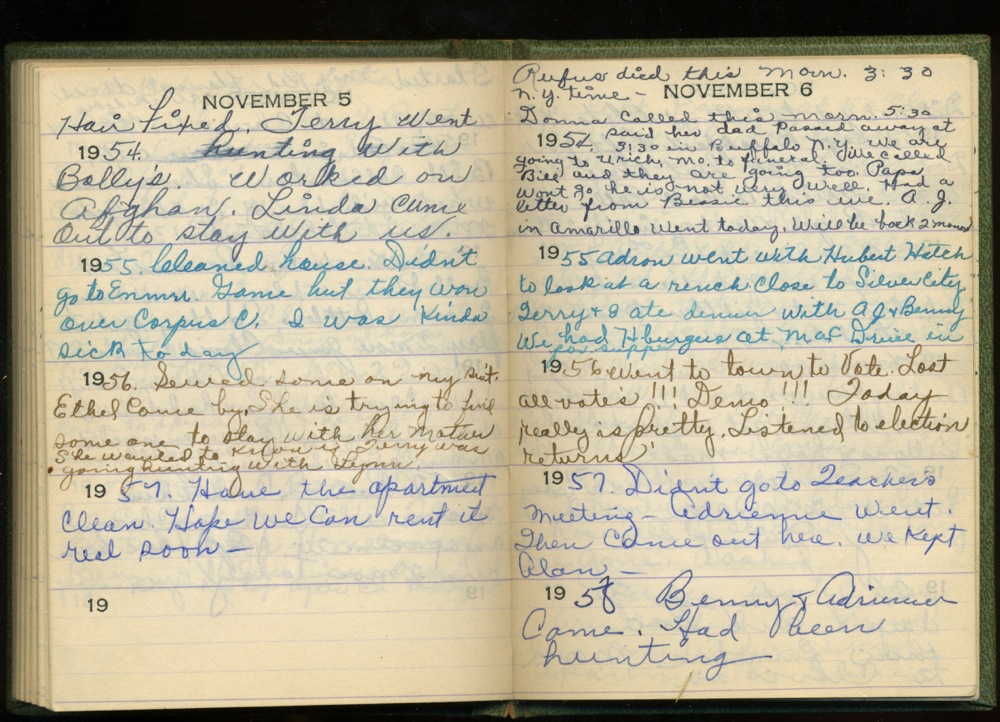 NOVEMBER 5
Hair Fixed. Terry Went
1954. hunting With
Bolly's. Worked on
Afghan. Linda came
Out to stay with us.
1955. Cleaned house. Didn't
go to Enmu. Game but they won
over Corpus C. I was Kinda
sick to day
1956. Sewed some on my suit.
Ethel Came by. She is trying to find
some one to stay with her Mother
She wanted to know if Terry was
going hunting with Lynn.
1957. Have the apartment
Clean. Hope we Can rent it
real soon —
19
Rufus died this Morn. 3:30
N.Y. time —
NOVEMBER 6
Donna Called this Morn. 5:30
1954. said her dad Passed away at
3:30 in Buffalo N.Y. We are
going to Urich, Mo. to funeral. We called
Bill and they are going too. Papa
Wont go he is not very Well. Had a
letter from Bessie this eve. A.J.
in Amarillo Went today. Will be back 2 morrow
1955 Adron went with Hubert Hatch
to look at a rench Close to Silver City
Terry & I ate dinner With AJ & Benny
We had Hburgers at Mac Drive in
for supper
1956 Went to town to Vote. Lost
all votes !!! Demo !!! Today
really is pretty. Listened to election
returns
1957. Didn't go to Teachers
Meeting — Adrienne Went.
Then Came out here. We Kept
Alan —
1958 Benny & Adrienne
Came. Had been
hunting